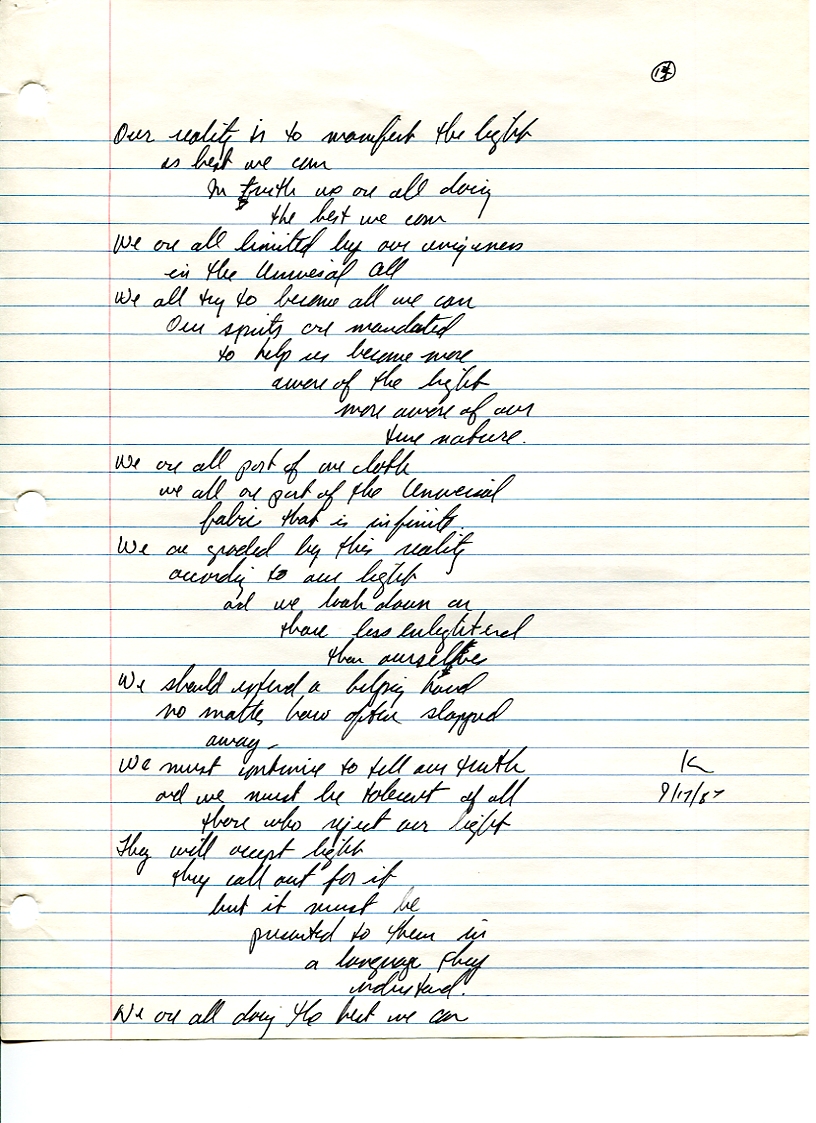 14
Our reality is to manifest the light
as best we can
In truth we are all doing
the best we can
We are all limited by our uniqueness
in the Universal All
We all try to become all we can
Our spirits are mandated
to help us become more
aware of the light
more aware of our
true nature.
We are all part of one cloth
we all are part of the Universal
fabric that is infinite.
We are graded by this reality
according to our light
and we look down on
those less enlightened
than ourselves
We should extend a helping hand
no matter how often slapped
away -
We must continue to tell our truth
K
and we must be tolerant of all
9/17/87
those who reject our light
They will accept light
they call out for it
but it must be
presented to them in
a language they
understand.
We are all doing the best we can